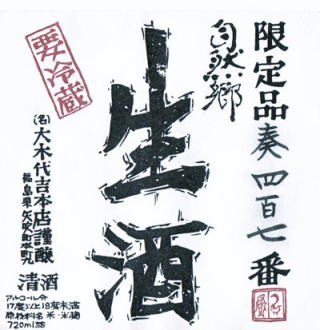 限定品奏四百七番
自然郷
生酒
要冷蔵
(名)大木代吉本店謹醸
福島県矢吹町本町九
清酒
アルコール分
17度以上18度未満
原材料名 米・米麹
720ml詰